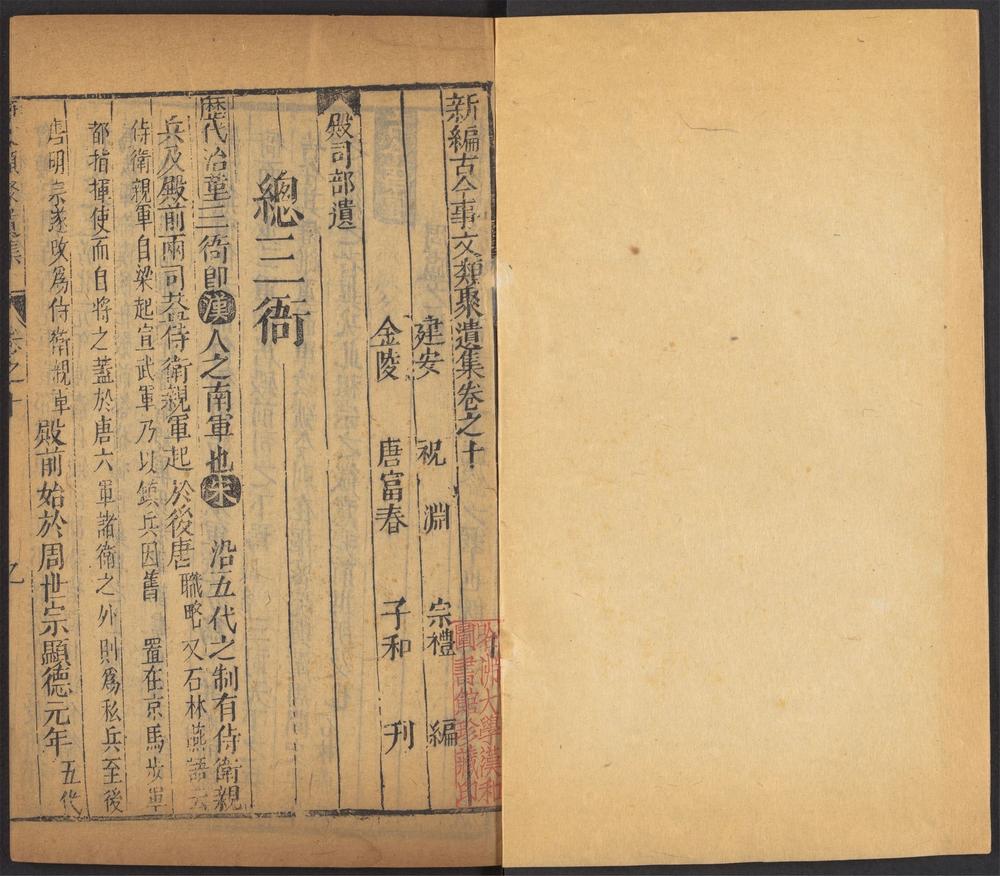 新編古今事文類聚遺集卷之十
建安 祝 淵 宗禮 編
金陵 唐富春 子和 刋
殿司部遺
總三衙
歷代冶革三衙卽漢人之南軍也宋 沿五代之制有侍衛親
兵及殿前兩司葢侍衛親軍起於後唐職略又石林燕語云
侍衛親軍自梁起宣武軍乃以鎮兵因舊 置在京馬步軍
都指揮使而自將之蓋於唐六軍諸衛之外則爲私兵至後
唐明宗遂改爲侍衛親軍殿前始於周世宗顯德元年五代
哈佛大學漢和
圖書館珍藏印